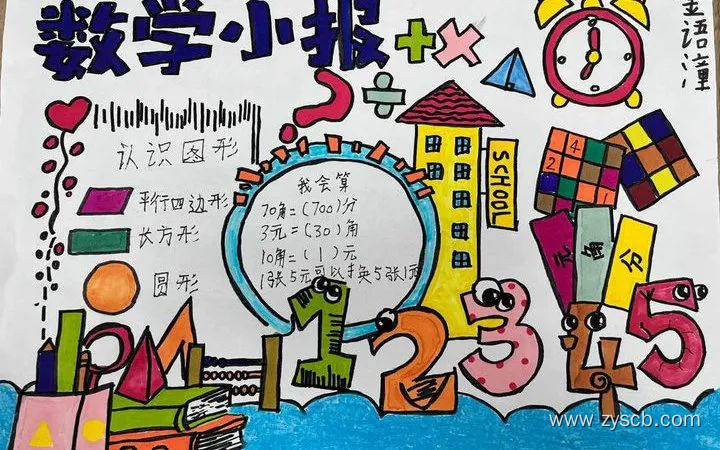 数学小报
语潼
认识图形
平行四边形
长方形
圆形
我会算
70角=(700)分
3元=(30)角
10角=(1)元
1张5元可以换5张1元
SCHOOL
2 4
元 角 分
1 2 3 4 5
www.zyscb.com